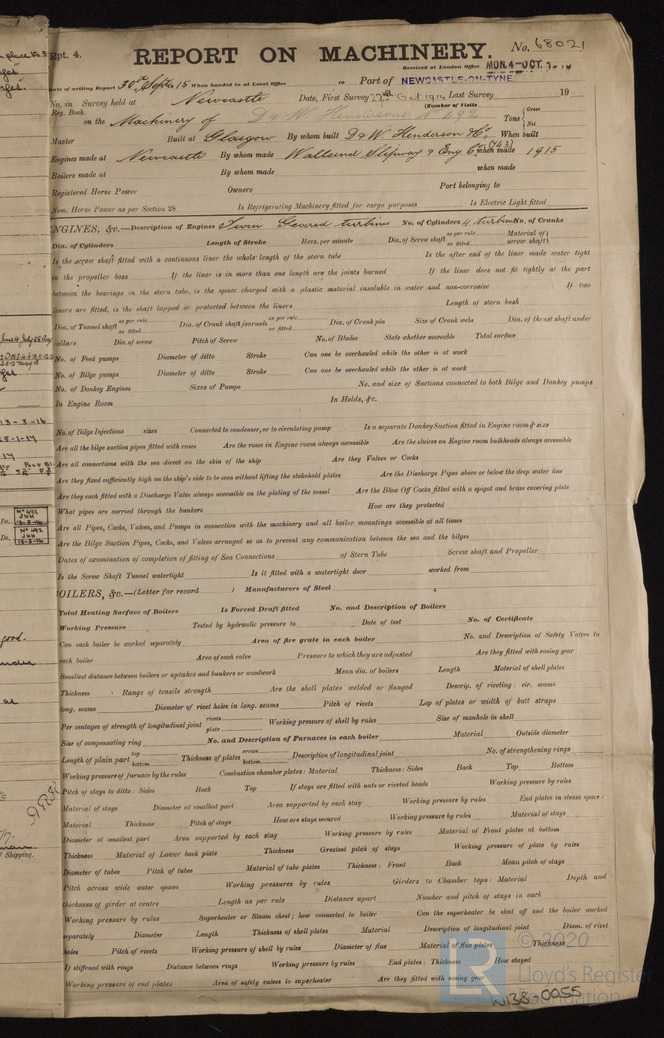 Rpt. 4.
REPORT ON MACHINERY.
No. 68021
Received at London Office MON. 4 - OCT. 1
Date of writing Report 30th Sept 15 When handed in at Local Office Port of NEWCASTLE-ON-TYNE
No. in Survey held at Newcastle Date, First Survey Oct 1914 Last Survey 19
Reg. Book. (Number of Visits
on the Machinery of D & W Henderson's No 492 Tons Gross Net
Master Built at Glasgow By whom built D & W Henderson & Co When built
Engines made at Newcastle By whom made Wallsend Slipway & Eng. Co (743) when made 1915
Boilers made at By whom made when made
Registered Horse Power Owners Port belonging to
Nom. Horse Power as per Section 28 Is Refrigerating Machinery fitted for cargo purposes Is Electric Light fitted
ENGINES, &c.—Description of Engines Twin Geared turbines No. of Cylinders 4 turbines No. of Cranks
Dia. of Cylinders Length of Stroke Revs. per minute Dia. of Screw shaft as per rule as fitted Material of screw shaft
Is the screw shaft fitted with a continuous liner the whole length of the stern tube Is the after end of the liner made water tight
in the propeller boss If the liner is in more than one length are the joints burned If the liner does not fit tightly at the part
between the bearings in the stern tube, is the space charged with a plastic material insoluble in water and non-corrosive If two
liners are fitted, is the shaft lapped or protected between the liners Length of stern bush
Dia. of Tunnel shaft as per rule as fitted Dia. of Crank shaft journals as per rule as fitted Dia. of Crank pin Size of Crank webs Dia. of thrust shaft under
collars Dia. of screw Pitch of Screw No. of Blades State whether moveable Total surface
No. of Feed pumps Diameter of ditto Stroke Can one be overhauled while the other is at work
No. of Bilge pumps Diameter of ditto Stroke Can one be overhauled while the other is at work
No. of Donkey Engines Sizes of Pumps No. and size of Suctions connected to both Bilge and Donkey pumps
In Engine Room In Holds, &c.
No. of Bilge Injections sizes Connected to condenser, or to circulating pump Is a separate Donkey Suction fitted in Engine room & size
Are all the bilge suction pipes fitted with roses Are the roses in Engine room always accessible Are the sluices on Engine room bulkheads always accessible
Are all connections with the sea direct on the skin of the ship Are they Valves or Cocks
Are they fixed sufficiently high on the ship's side to be seen without lifting the stokehold plates Are the Discharge Pipes above or below the deep water line
Are they each fitted with a Discharge Valve always accessible on the plating of the vessel Are the Blow Off Cocks fitted with a spigot and brass covering plate
What pipes are carried through the bunkers How are they protected
Are all Pipes, Cocks, Valves, and Pumps in connection with the machinery and all boiler mountings accessible at all times
Are the Bilge Suction Pipes, Cocks, and Valves arranged so as to prevent any communication between the sea and the bilges
Dates of examination of completion of fitting of Sea Connections of Stern Tube Screw shaft and Propeller
Is the Screw Shaft Tunnel watertight Is it fitted with a watertight door worked from
BOILERS, &c.—(Letter for record ) Manufacturers of Steel
Total Heating Surface of Boilers Is Forced Draft fitted No. and Description of Boilers
Working Pressure Tested by hydraulic pressure to Date of test No. of Certificate
Can each boiler be worked separately Area of fire grate in each boiler No. and Description of Safety Valves to
each boiler Area of each valve Pressure to which they are adjusted Are they fitted with easing gear
Smallest distance between boilers or uptakes and bunkers or woodwork Mean dia. of boilers Length Material of shell plates
Thickness Range of tensile strength Are the shell plates welded or flanged Descrip. of riveting: cir. seams
long. seams Diameter of rivet holes in long. seams Pitch of rivets Lap of plates or width of butt straps
Per centages of strength of longitudinal joint rivets plate Working pressure of shell by rules Size of manhole in shell
Size of compensating ring No. and Description of Furnaces in each boiler Material Outside diameter
Length of plain part top bottom Thickness of plates crown bottom Description of longitudinal joint No. of strengthening rings
Working pressure of furnace by the rules Combustion chamber plates: Material Thickness: Sides Back Top Bottom
Pitch of stays to ditto: Sides Back Top If stays are fitted with nuts or riveted heads Working pressure by rules
Material of stays Diameter at smallest part Area supported by each stay Working pressure by rules End plates in steam space:
Material Thickness Pitch of stays How are stays secured Working pressure by rules Material of stays
Diameter at smallest part Area supported by each stay Working pressure by rules Material of Front plates at bottom
Thickness Material of Lower back plate Thickness Greatest pitch of stays Working pressure of plate by rules
Diameter of tubes Pitch of tubes Material of tube plates Thickness: Front Back Mean pitch of stays
Pitch across wide water spaces Working pressures by rules Girders to Chamber tops: Material Depth and
thickness of girder at centre Length as per rule Distance apart Number and pitch of stays in each
Working pressure by rules Superheater or Steam chest; how connected to boiler Can the superheater be shut off and the boiler worked
separately Diameter Length Thickness of shell plates Material Description of longitudinal joint Diam. of rivet
holes Pitch of rivets Working pressure of shell by rules Diameter of flue Material of flue plates Thickness
If stiffened with rings Distance between rings Working pressure by rules End plates: Thickness How stayed
Working pressure of end plates Area of safety valves to superheater Are they fitted with easing gear
© 2020
Lloyd's Register
Foundation
W138-0055